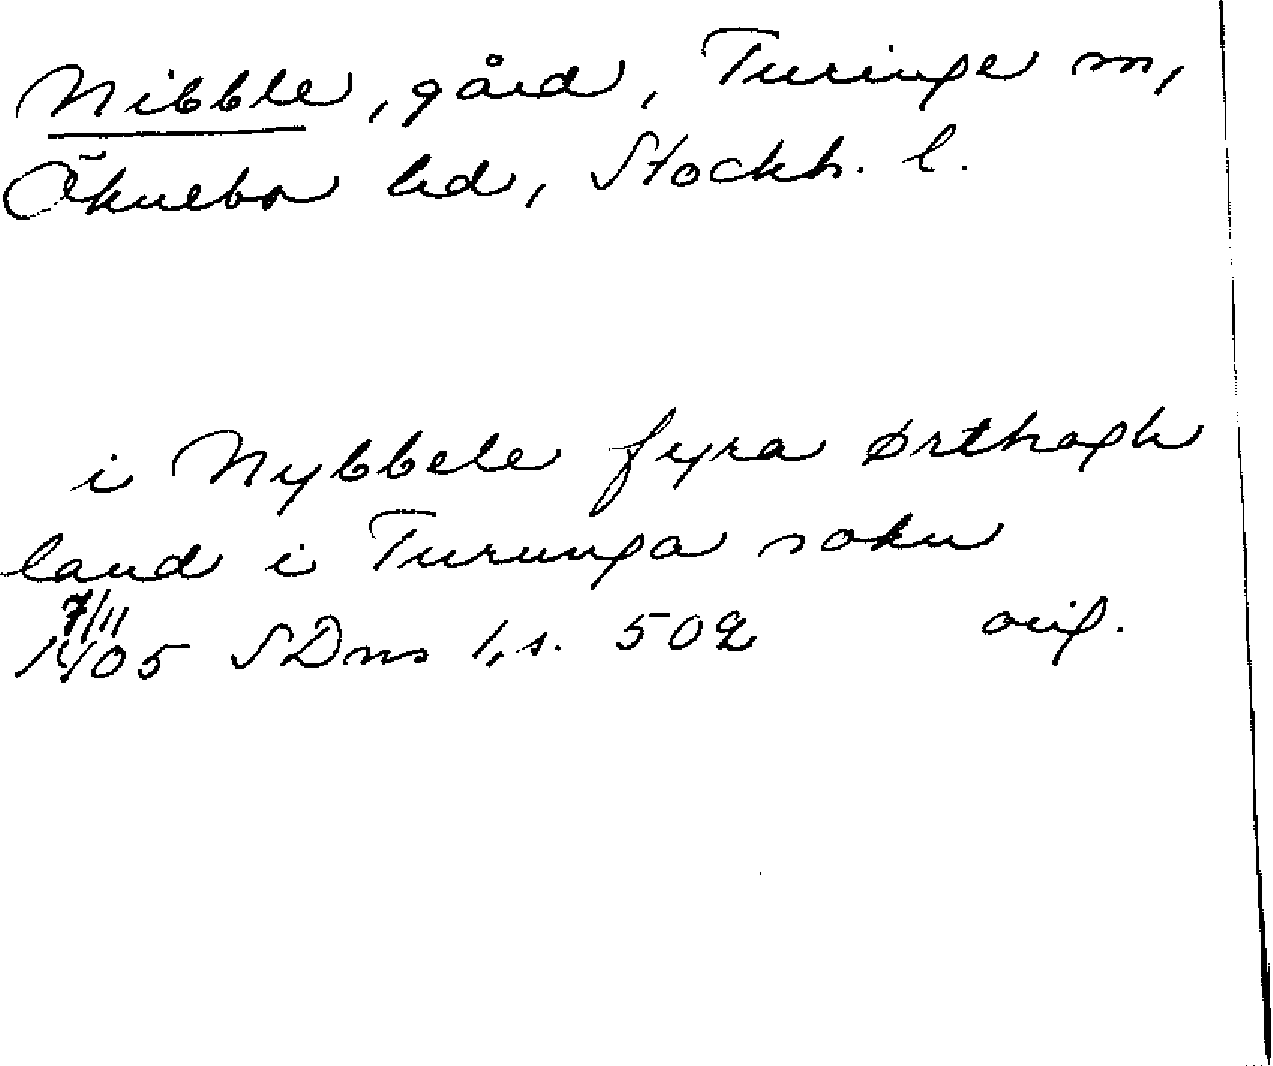 Nibble, gård, Turinge sn,
Öknebo hd, Stockh. l.
i Nybbele fyra ørthogh
land i Turunga sokn
7/11
1405 SDns 1, s. 502 orig.